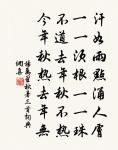 汗如雨點涌人膚
一一須根一一珠
不道去年秋不熱
今年秋熱去年無
楊萬里秋暑三首詞典
網集